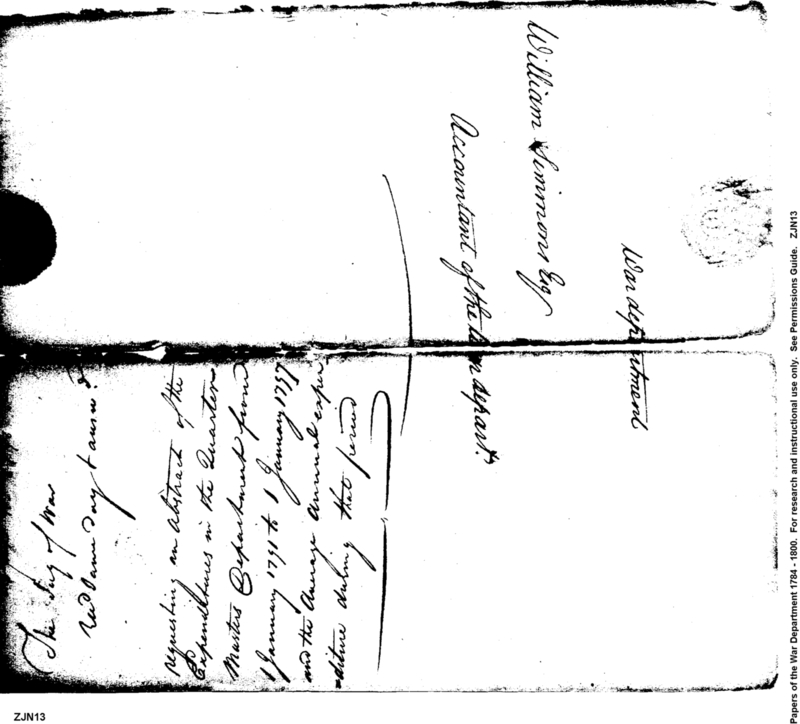 War department
William Simmons Esq
Accountant of the War depart.
The Secy of War
Recd same day & answd
requesting an Abstract of the
Expenditures in the Quarter
Masters Department from
1 January 1795 to 1 January
and the Average Annual expen
-diture during that period
Papers of the War Department 1784 - 1800. For research and instructional use only. See Permissions Guide. ZJN13
ZJN13